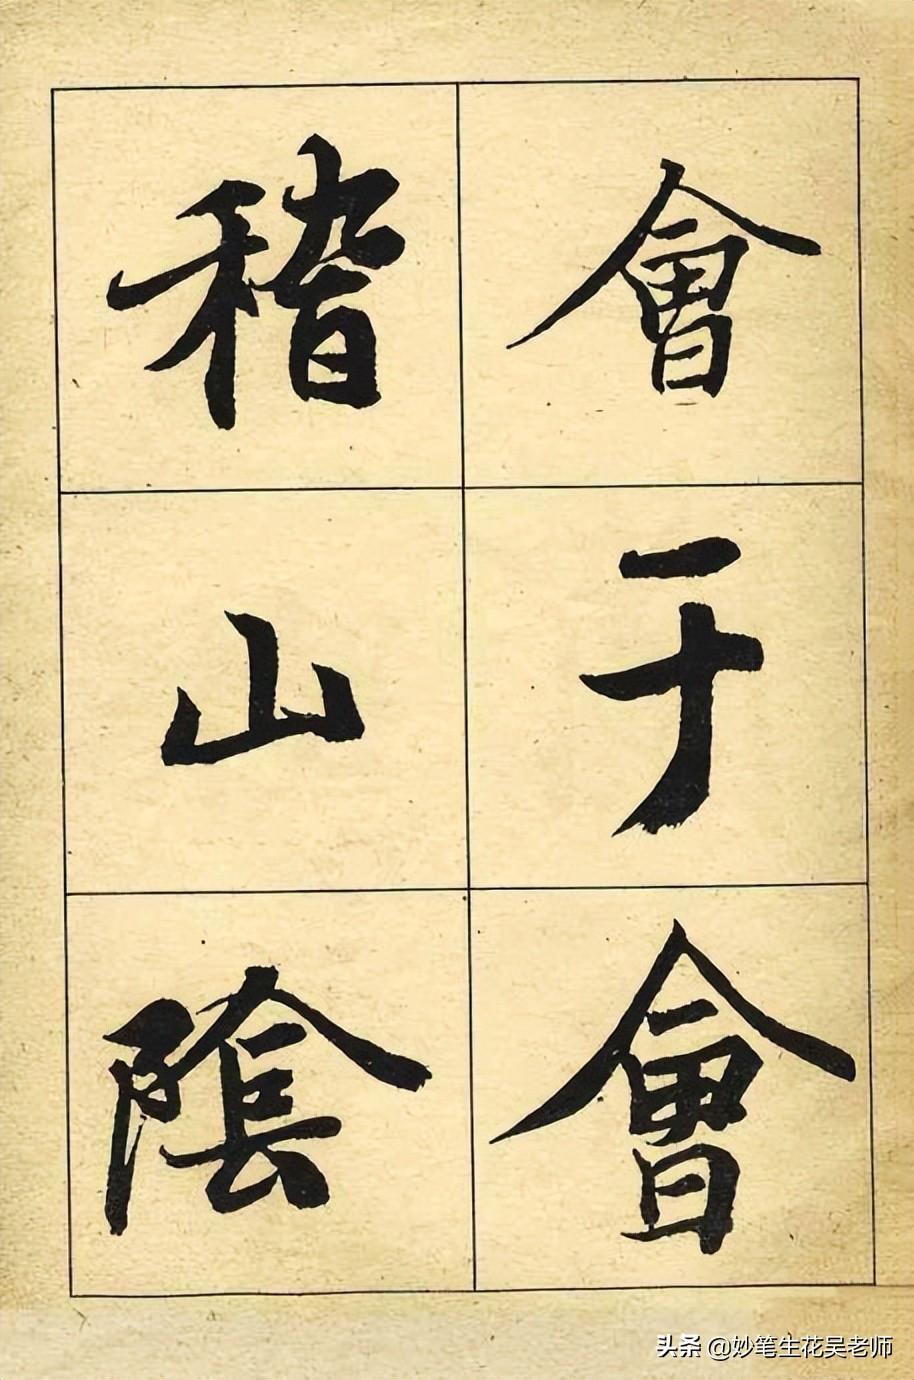 會于會
稽山陰
头条 @妙笔生花吴老师